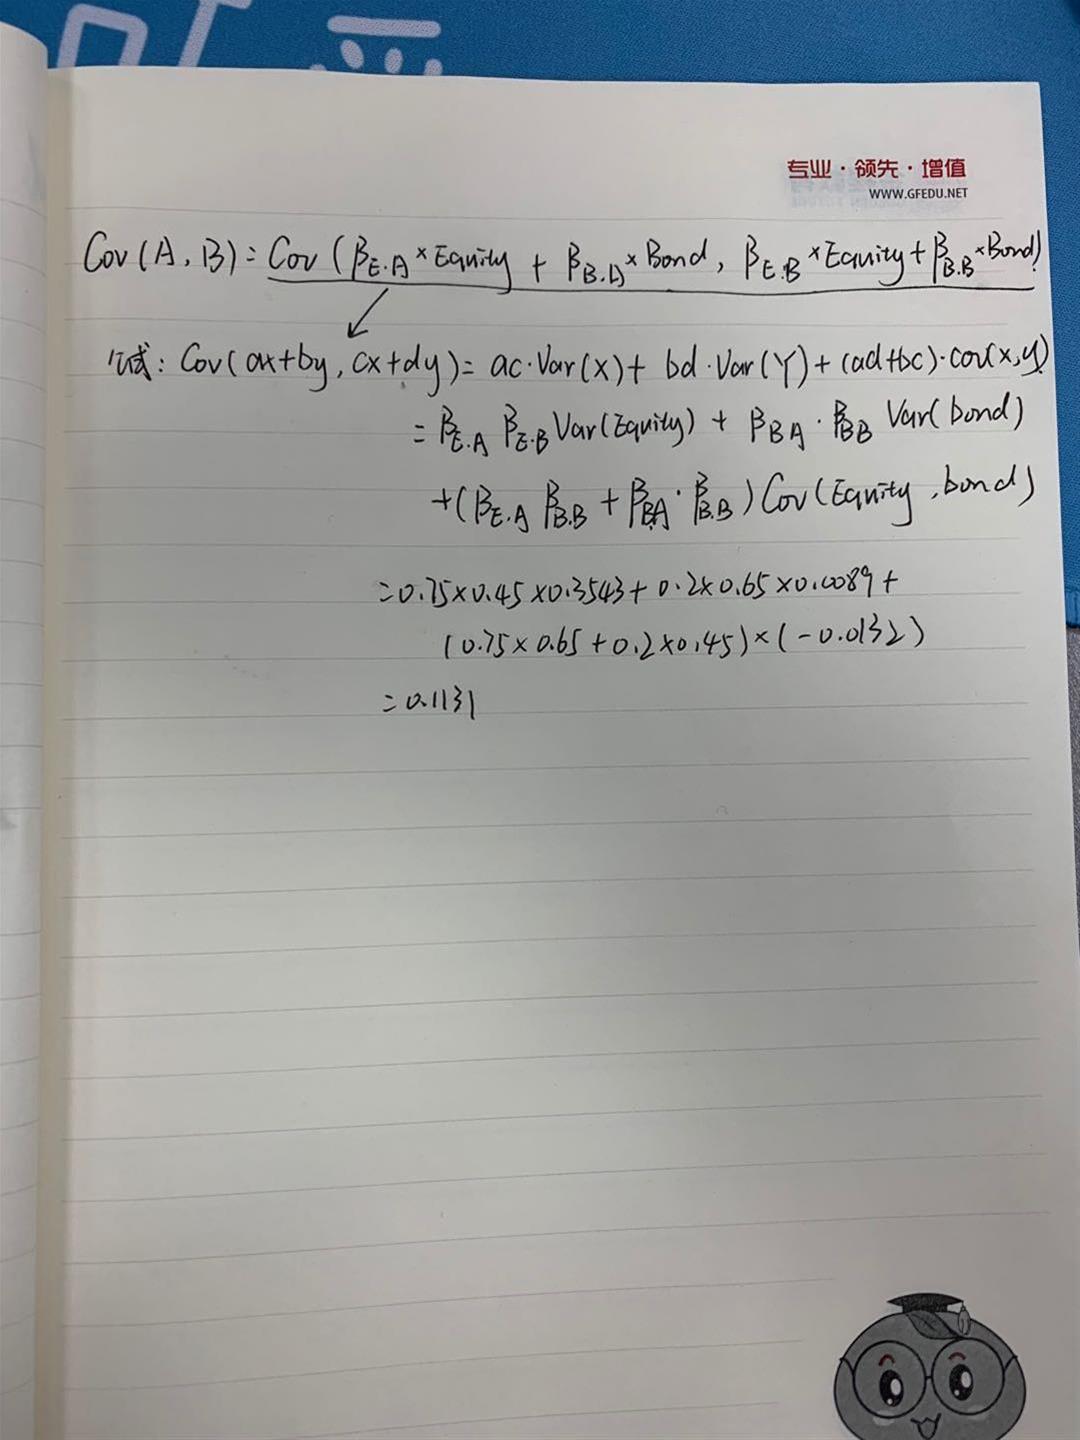 专业·领先·增值
WWW.GFEDU.NET
Cov(A,B)=Cov(β_{E.A}×Equity+β_{B.A}×Bond, β_{E.B}×Equity+β_{B.B}×Bond)
公式:Cov(ax+by, cx+dy)=ac·Var(X)+bd·Var(Y)+(ad+bc)·cov(x,y)
=β_{E.A} β_{E.B} Var(Equity)+β_{BA}·β_{BB} Var(bond)
+(β_{E.A} β_{B.B}+β_{BA}·β_{B.B})Cov(Equity,bond)
=0.75×0.45×0.3543+0.2×0.65×0.0089+
(0.75×0.65+0.2×0.45)×(-0.0132)
=0.1131